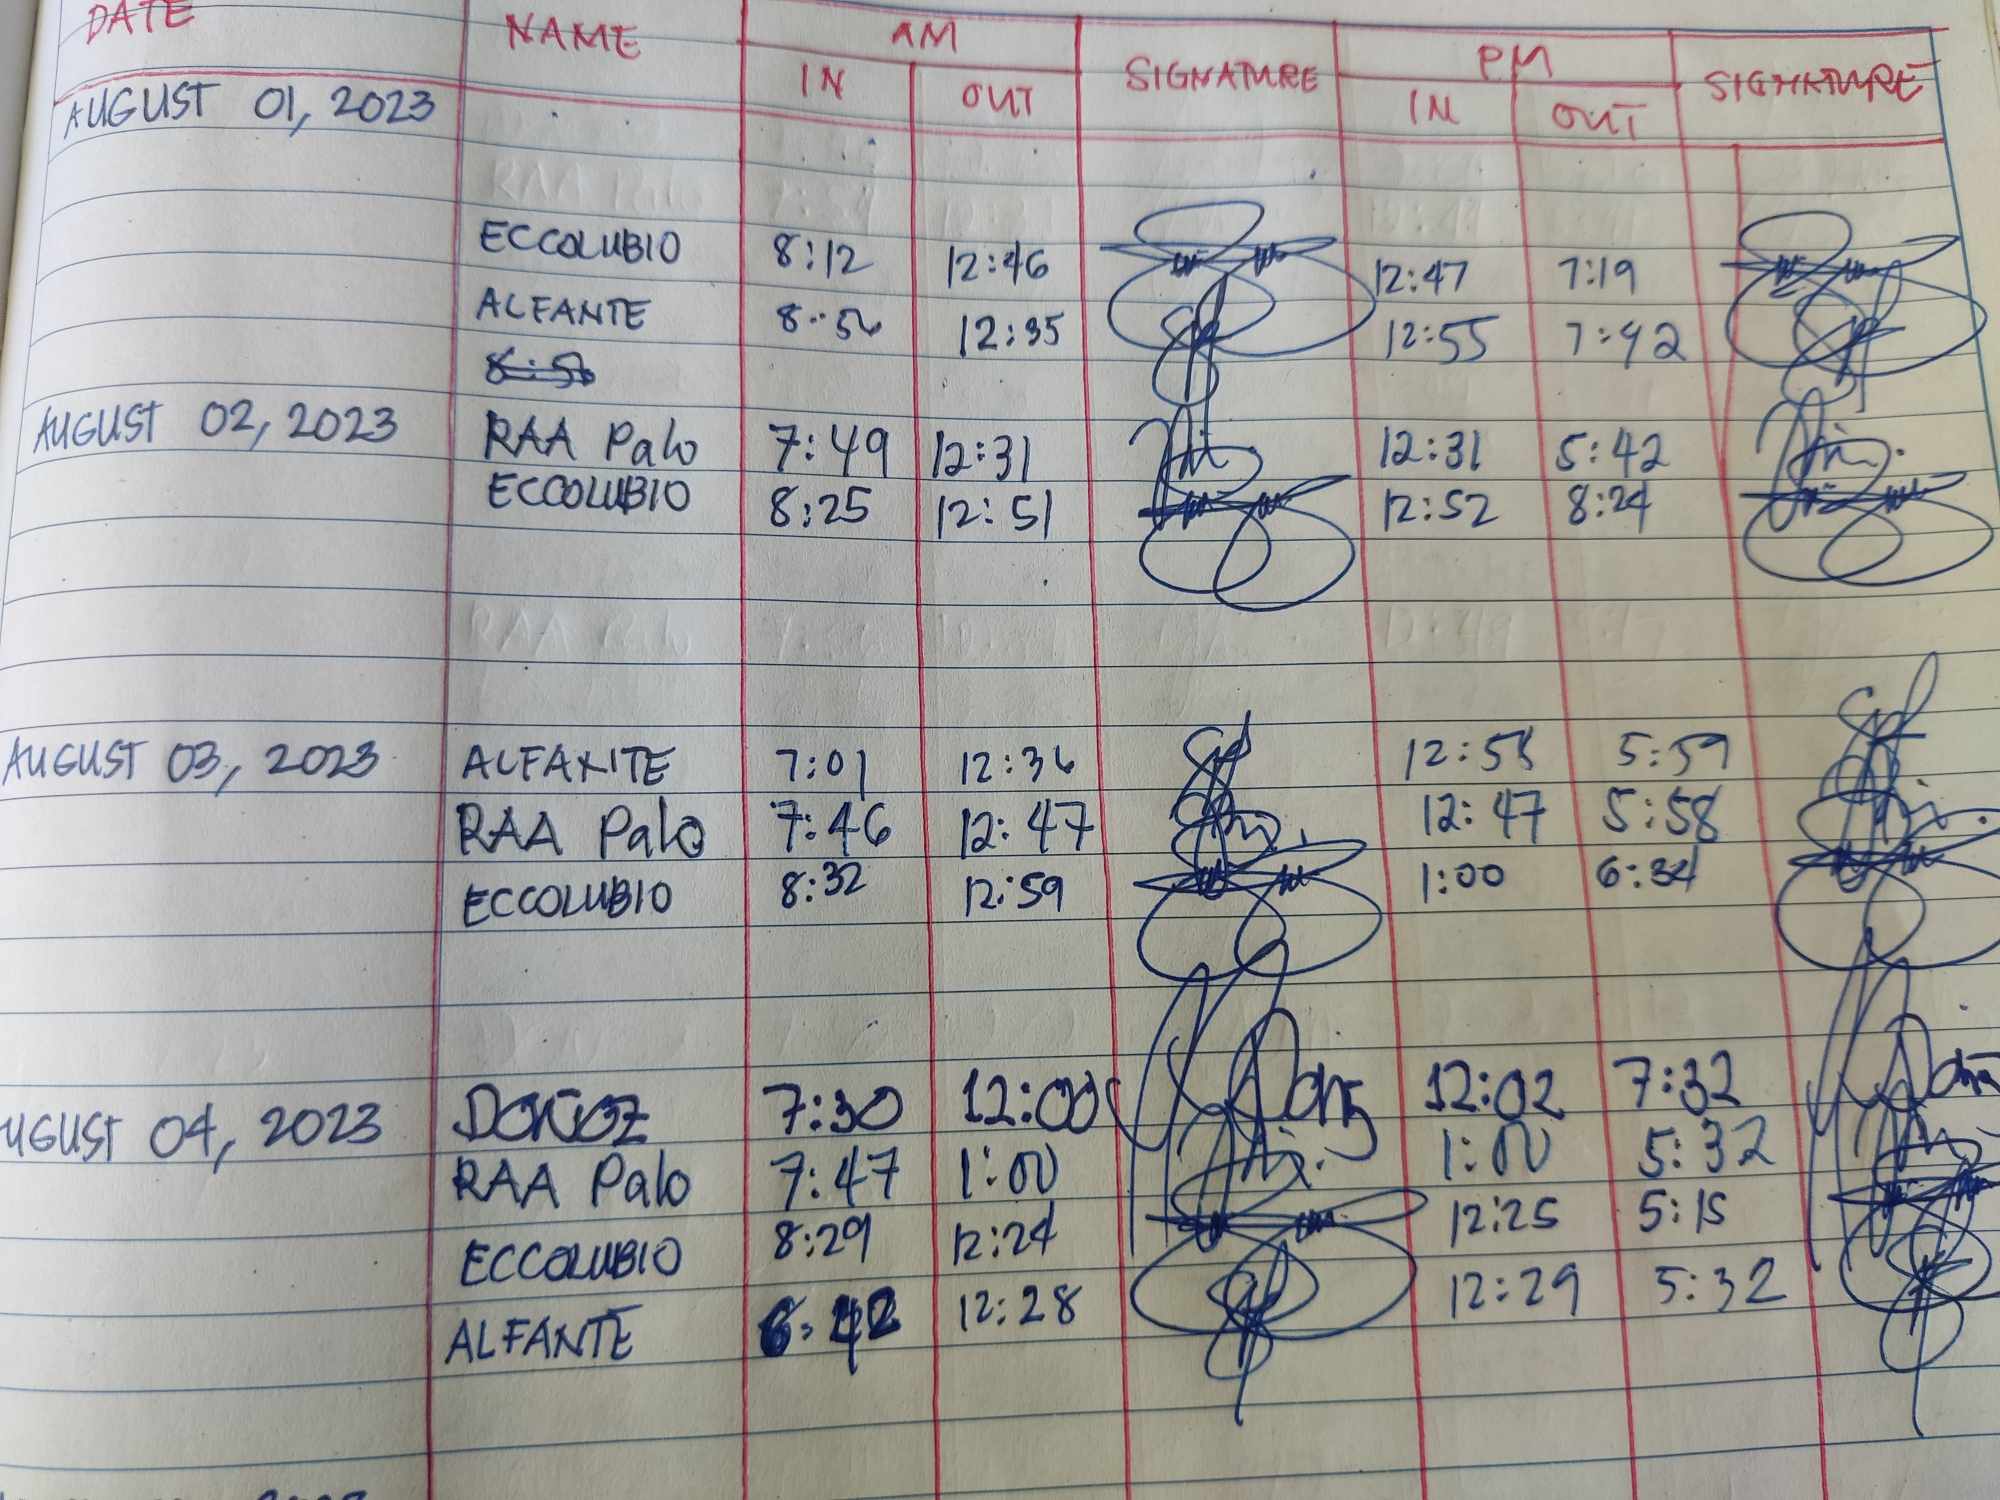 DATE NAME AM SIGNATURE PM SIGNATURE
IN OUT IN OUT
AUGUST 01, 2023
ECCOLUBIO 8:12 12:46 12:47 7:19
ALFANTE 12:35 12:55 7:42
AUGUST 02, 2023 RAA Palo 7:49 12:31 12:31 5:42
ECCOLUBIO 8:25 12:51 12:52 8:24
AUGUST 03, 2023 ALFANTE 7:01 12:36 12:58 5:59
RAA Palo 7:46 12:47 12:47 5:58
ECCOLUBIO 8:32 12:59 1:00 6:34
UGUST 04, 2023 7:30 12:00 12:02 7:32
RAA Palo 7:47 1:00 1:00 5:32
ECCOLUBIO 8:29 12:24 12:25 5:15
ALFANTE 12:28 12:29 5:32